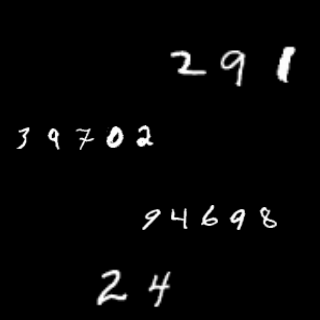 291
39702
94698
24